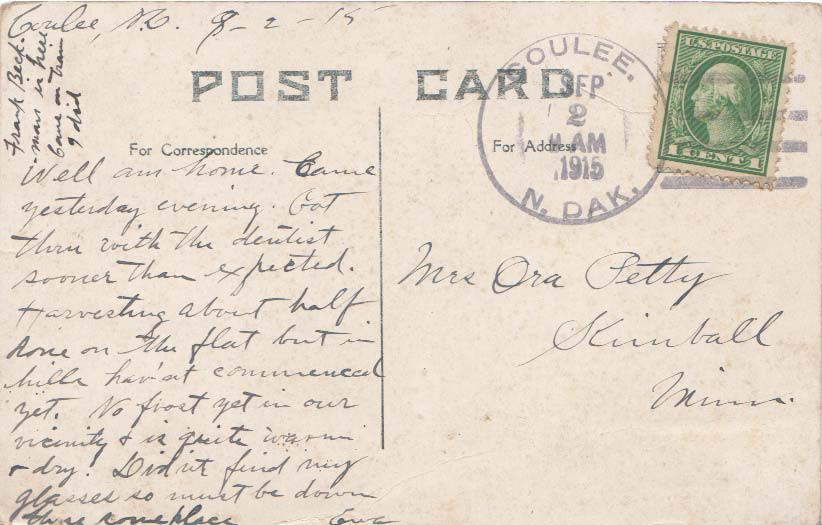 Coulee, N.D. 9-2-15
Frank Beck-
-man is here
Came on train
I did
POST CARD
For Correspondence
For Address
COULEE.
SEP
2
AM
1915
N. DAK.
U.S. POSTAGE
1 CENT 1
Well am home. Came
yesterday evening. Got
thru with the dentist
sooner than expected.
Harvesting about half
done on the flat but in
hills hav'nt commenced
yet. No frost yet in our
vicinity & is quite warm
& dry. Did'nt find my
glasses so must be down
there someplace Eva
Mrs Ora Petty
Kimball
Minn.